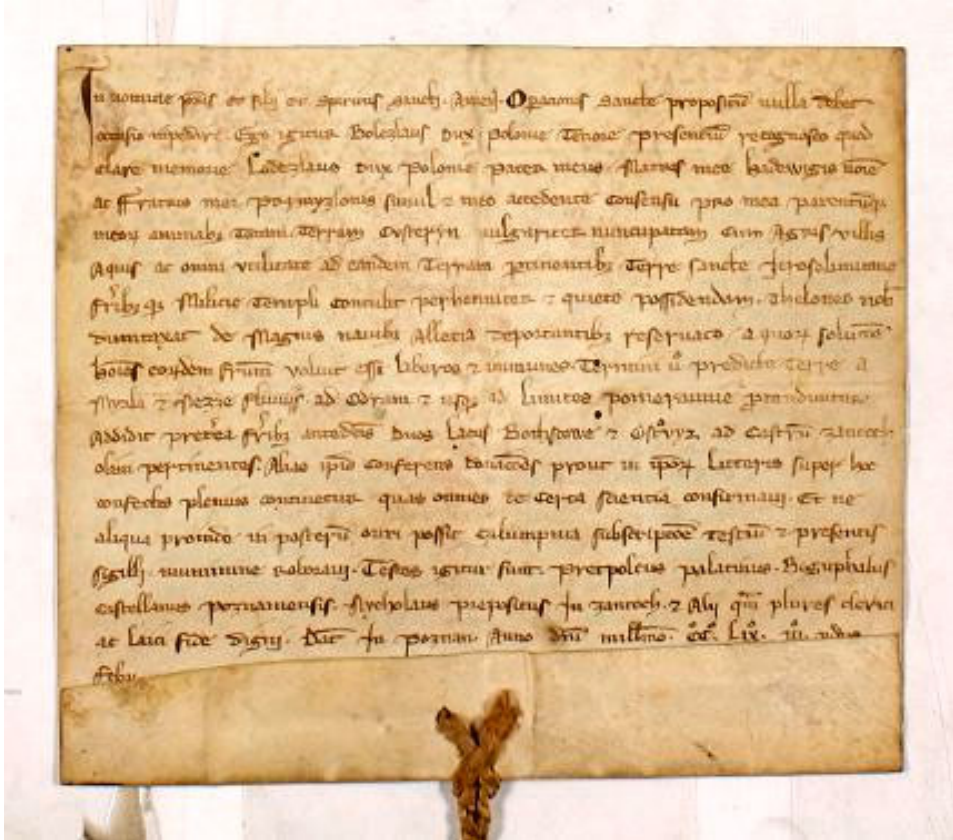 In nomine pris et filii et spiritus sancti. Amen. Oparionis sancte propositu nulla debet
occasio inpedire. Ego igitur Bolezlaus dux Polonie Tenore presenciu recognosco quod
clare memorie Lodezlaus dux Polonie pater meus. Matris mee hadewigis noie
ac Fratris mei Pozmyzlonis simul z meo accedente consensu pro mea parentumq
meor animabz Totam Terram Custeryn vulgariter nuncupatam Cum Agris villis
Aquis ac omni utilitate ad eandem Terram ptinentibz Terre sancte Jerosolimitane
fribz qz Milicie Templi Contulit perhenniter z quiete possidendam. Theloneo nob
dumtaxat de Magnis navibz Allecia deportantibz reservato. a quor solutoe
hoies eordem frum voluit esse liberos z inmunes. Termini u predicte Terre a
Mizla z Mezze fluviis ad Odram z usqz ad limites pomeranie ptenduntur.
Addidit preterea fribz antedcis duos lacus z ad Castru zantoch
olim pertinentes. Alias ipis Conferens donacoes prout in ipor litteris super hoc
confectis plenius continetur quas omnes de certa scientia confirmavi. Et ne
aliqua proinde in posteru oriri possit calumpnia subscripcoe testiu z presentis
sigilli munimine roboravi. Testes igitur sunt. Pretpolcus palatinus. Boguphalus
Castellanus poznaniensis. Nycholaus prepositus In zantoch. z Alii qm plures clerici
ac laici fide digni. Dat In poznan Anno dni millmo. CC. LIX. iii. ydus
febr.